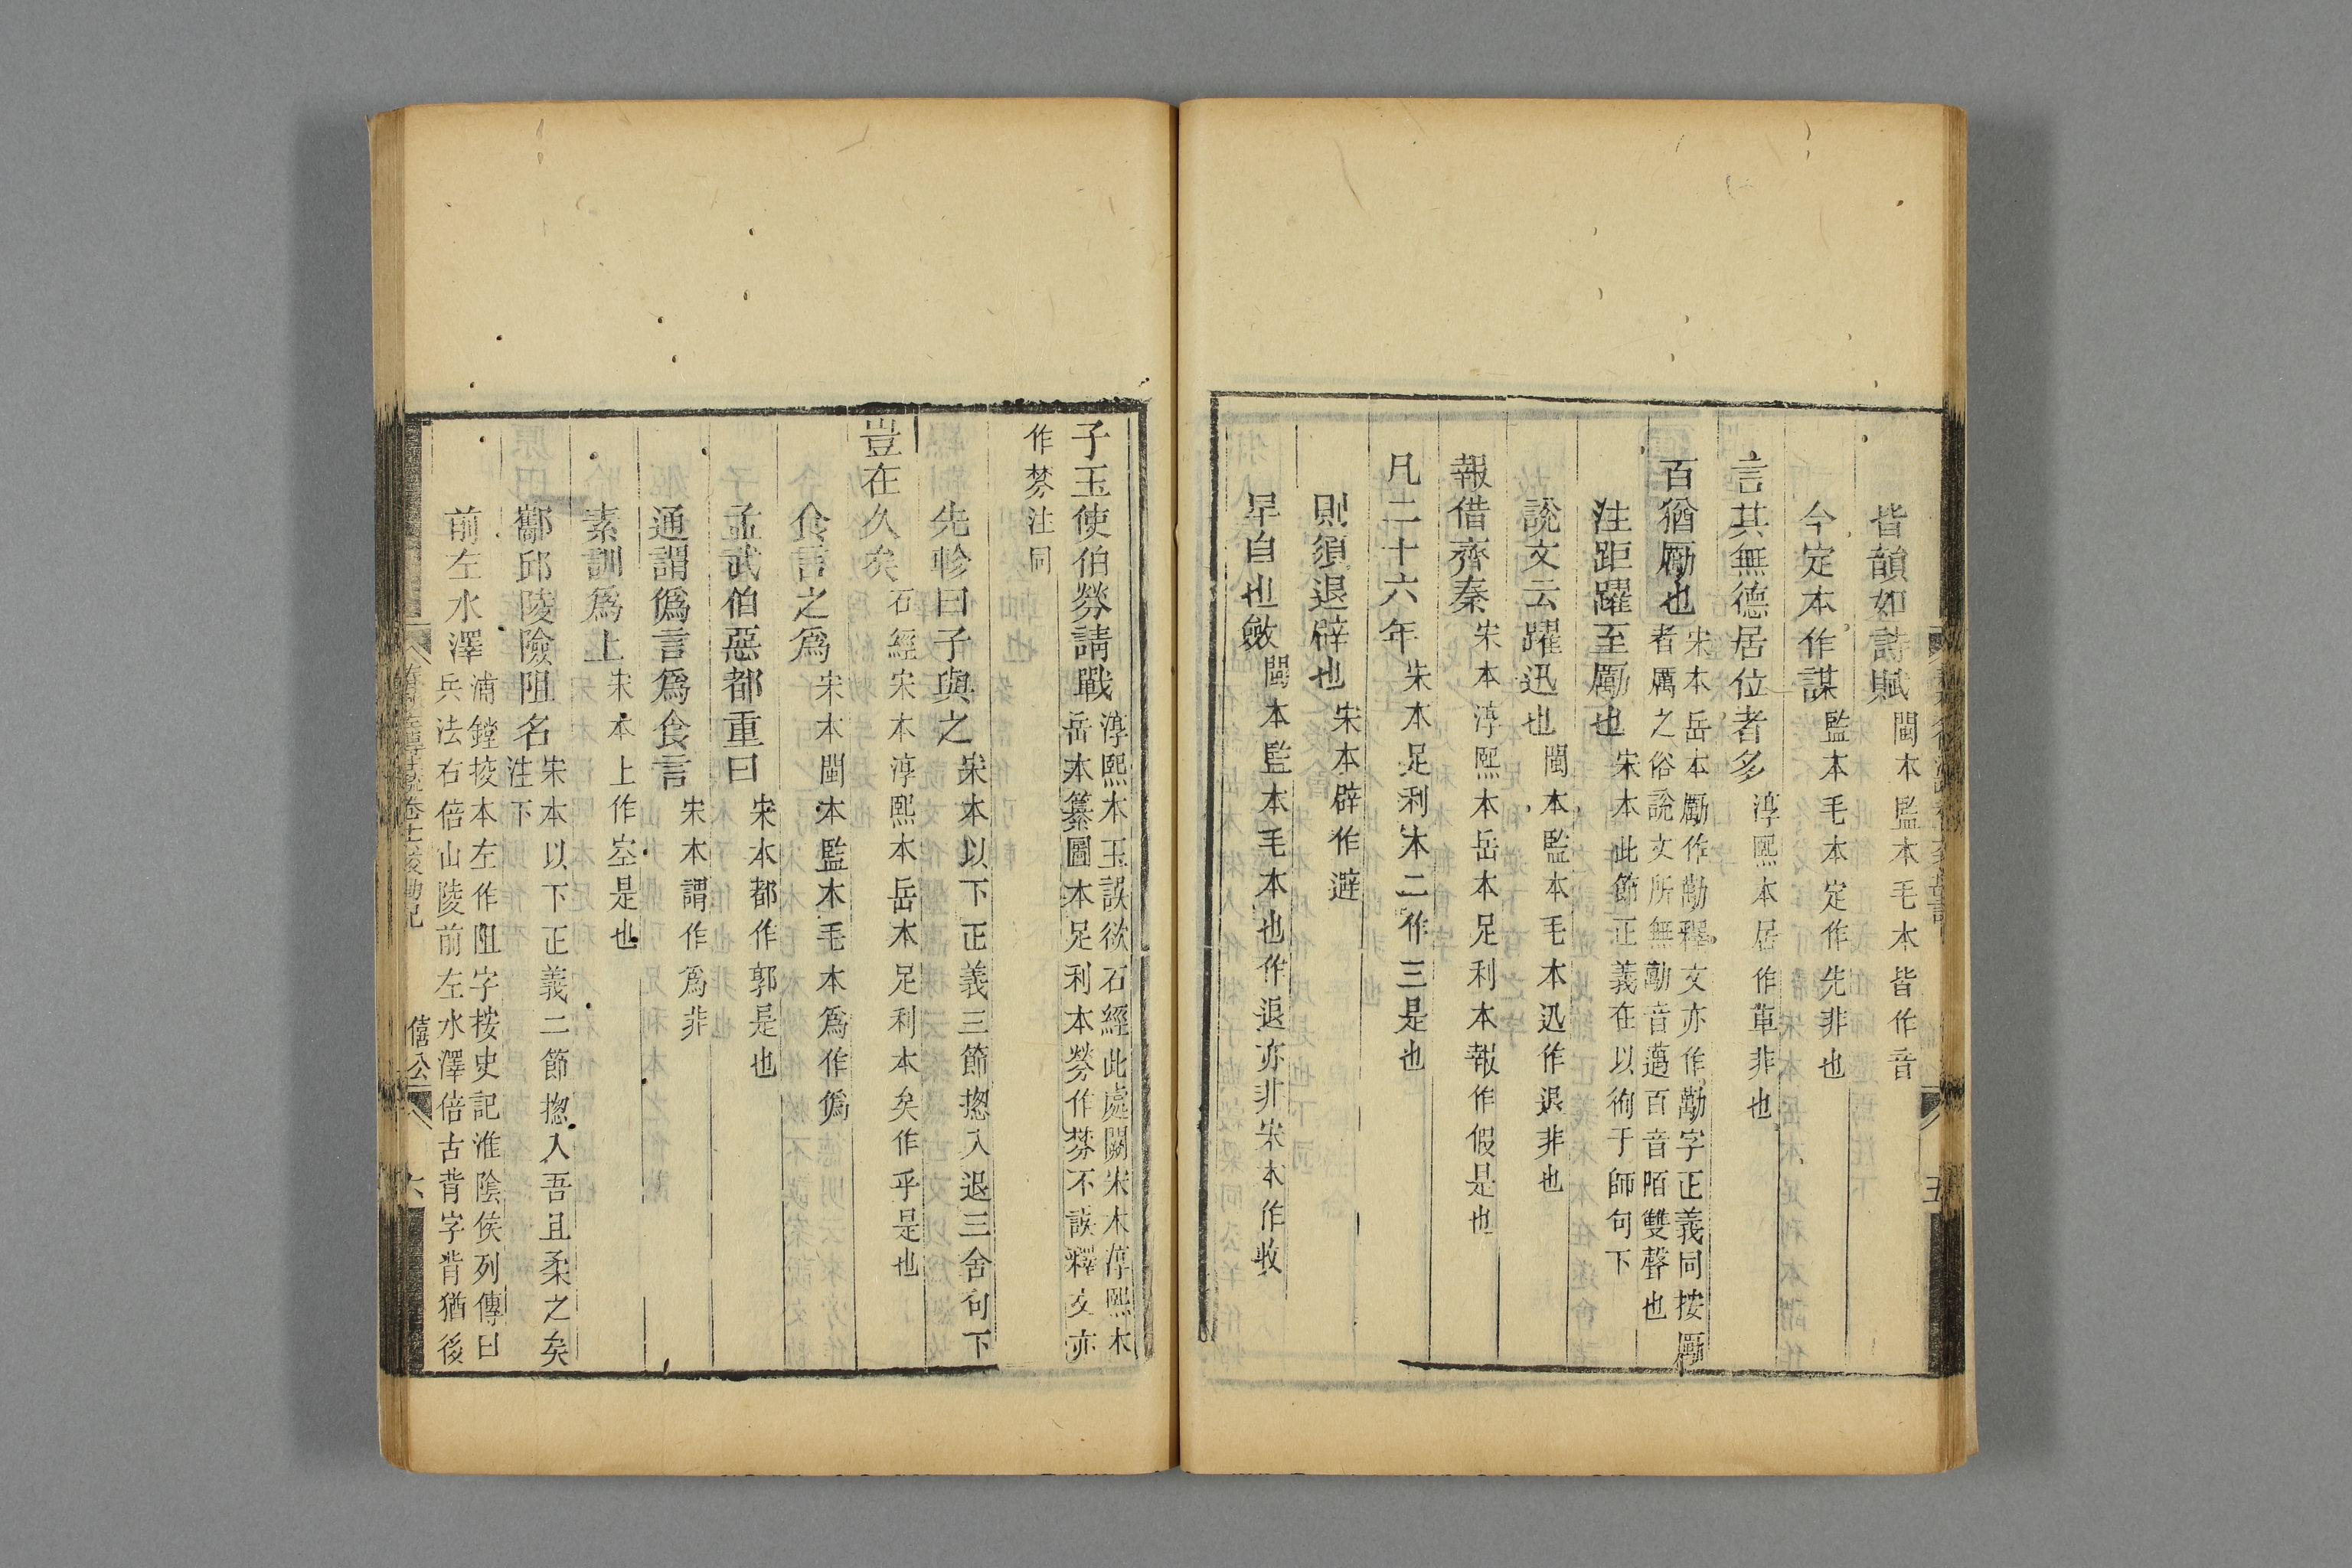 皆韻如詩賦 閩本監本毛本皆作音
今定本作謀 監本毛本定作先非也
言其無德居位者多 淳熙本居作車非也
百猶勵也 宋本岳本勵作勱釋文亦作勱字正義同按勵
者厲之俗說文所無勱音邁百音陌雙聲也
注距躍至勵也 宋本此節正義在以徇于師句下
說文云躍迅也 閩本監本毛本迅作退非也
報借齊秦 宋本淳熙本岳本足利本報作假是也
凡二十六年 宋本足利本二作三是也
則須退辟也 宋本辟作避
早自也斂 閩本監本毛本也作退亦非宋本作收
子玉使伯棼請戰 淳熙本玉誤欲石經此處闕宋本淳熙本
岳本纂圖本足利本棼作棼不誤釋文亦
作棼注同
先軫曰子與之 宋本以下正義三節揔入退三舍句下
豈在久矣 石經宋本淳熙本岳本足利本矣作乎是也
食言之爲 宋本閩本監本毛本爲作僞
孟武伯惡都重曰 宋本都作郭是也
通謂僞言爲食言 宋本謂作爲非
素訓爲上 宋本上作空是也
酅邱陵險阻名 宋本以下正義二節揔入吾且柔之矣
注下
前左水澤 浦鏜挍本左作阻字按史記淮陰侯列傳曰
兵法右倍山陵前左水澤倍古背字背猶後
僖公
六
五